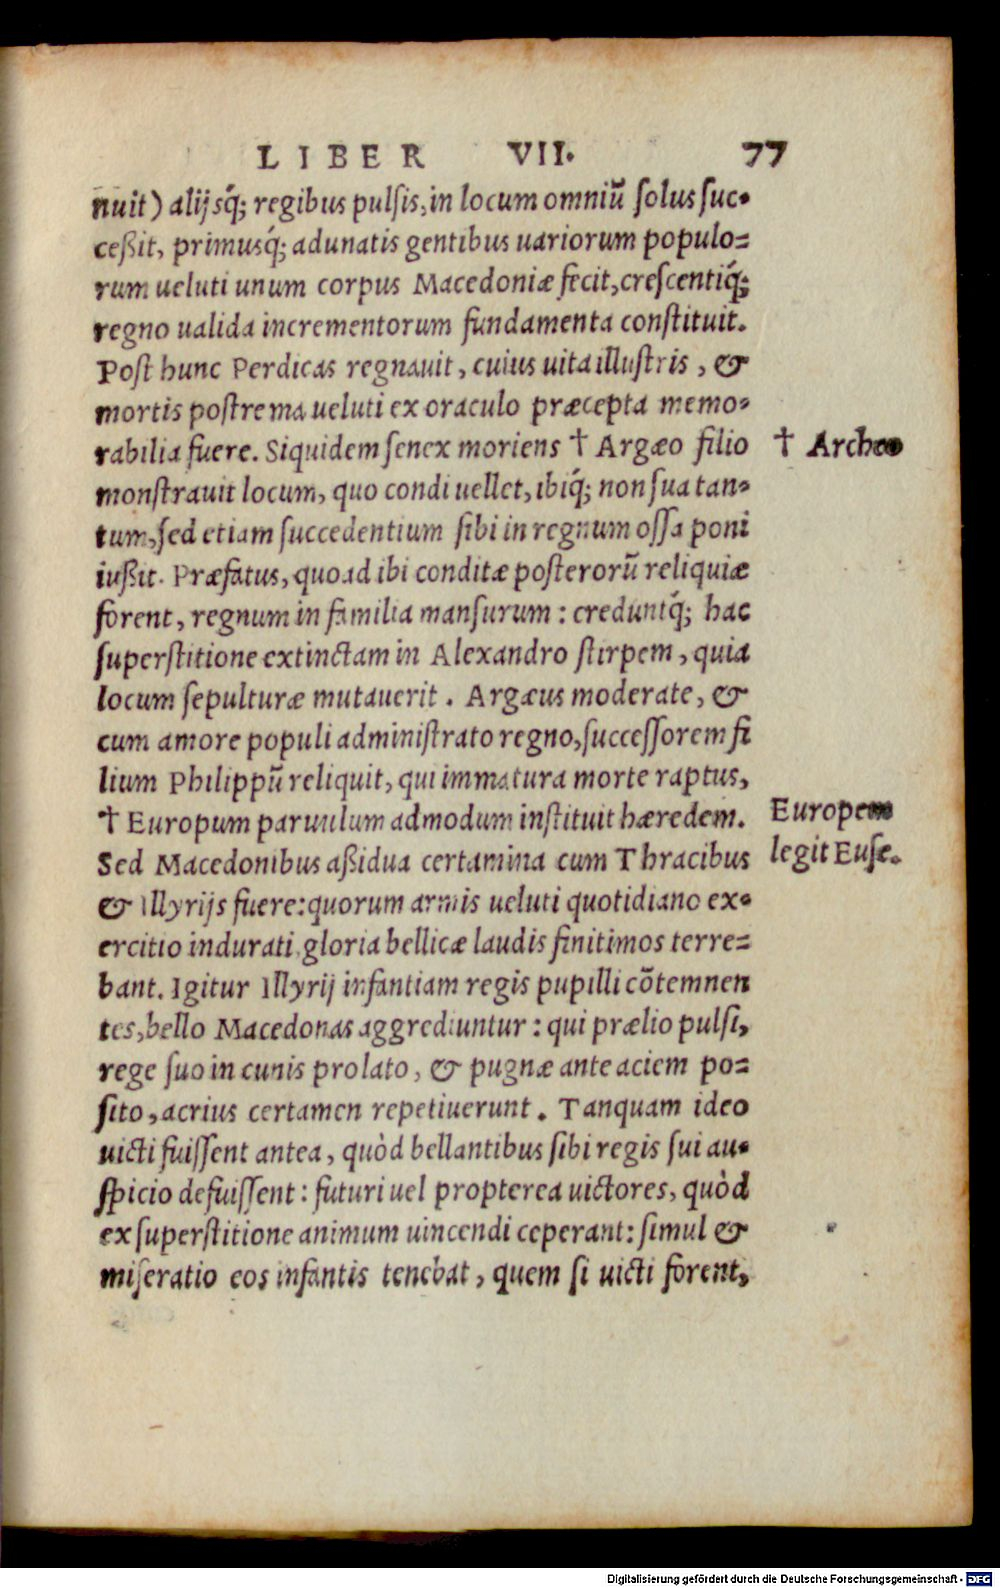 LIBER VII. 77
nuit) alijsq́; regibus pulſis, in locum omniũ ſolus ſuc-
ceßit, primusq́; adunatis gentibus uariorum populo-
rum ueluti unum corpus Macedoniæ fecit, creſcentiq́;
regno ualida incrementorum fundamenta conſtituit.
Poſt hunc Perdicas regnauit, cuius uita illuſtris, &
mortis poſtrema ueluti ex oraculo præcepta memo-
rabilia fuere. Siquidem ſenex moriens † Argæo filio
† Archeo
monſtrauit locum, quo condi uellet, ibiq́; non ſua tan-
tum, ſed etiam ſuccedentium ſibi in regnum oſſa poni
iußit. Præfatus, quoad ibi conditæ poſterorũ reliquiæ
forent, regnum in familia manſurum: creduntq́; hac
ſuperſtitione extinctam in Alexandro ſtirpem, quia
locum ſepulturæ mutauerit. Argæus moderate, &
cum amore populi adminiſtrato regno, ſucceſſorem fi
lium Philippũ reliquit, qui immatura morte raptus,
† Europum paruulum admodum inſtituit hæredem.
Europem
Sed Macedonibus aßidua certamina cum Thracibus
legit Euſe.
& Illyrijs fuere: quorum armis ueluti quotidiano ex-
ercitio indurati, gloria bellicæ laudis finitimos terre-
bant. Igitur Illyrij infantiam regis pupilli cõtemnen
tes, bello Macedonas aggrediuntur: qui prælio pulſi,
rege ſuo in cunis prolato, & pugnæ ante aciem po-
ſito, acrius certamen repetiuerunt. Tanquam ideo
uicti fuiſſent antea, quòd bellantibus ſibi regis ſui au-
ſpicio defuiſſent: futuri uel propterea uictores, quòd
ex ſuperſtitione animum uincendi ceperant: ſimul &
miſeratio eos infantis tenebat, quem ſi uicti forent,
Digitalisierung gefördert durch die Deutsche Forschungsgemeinschaft - DFG